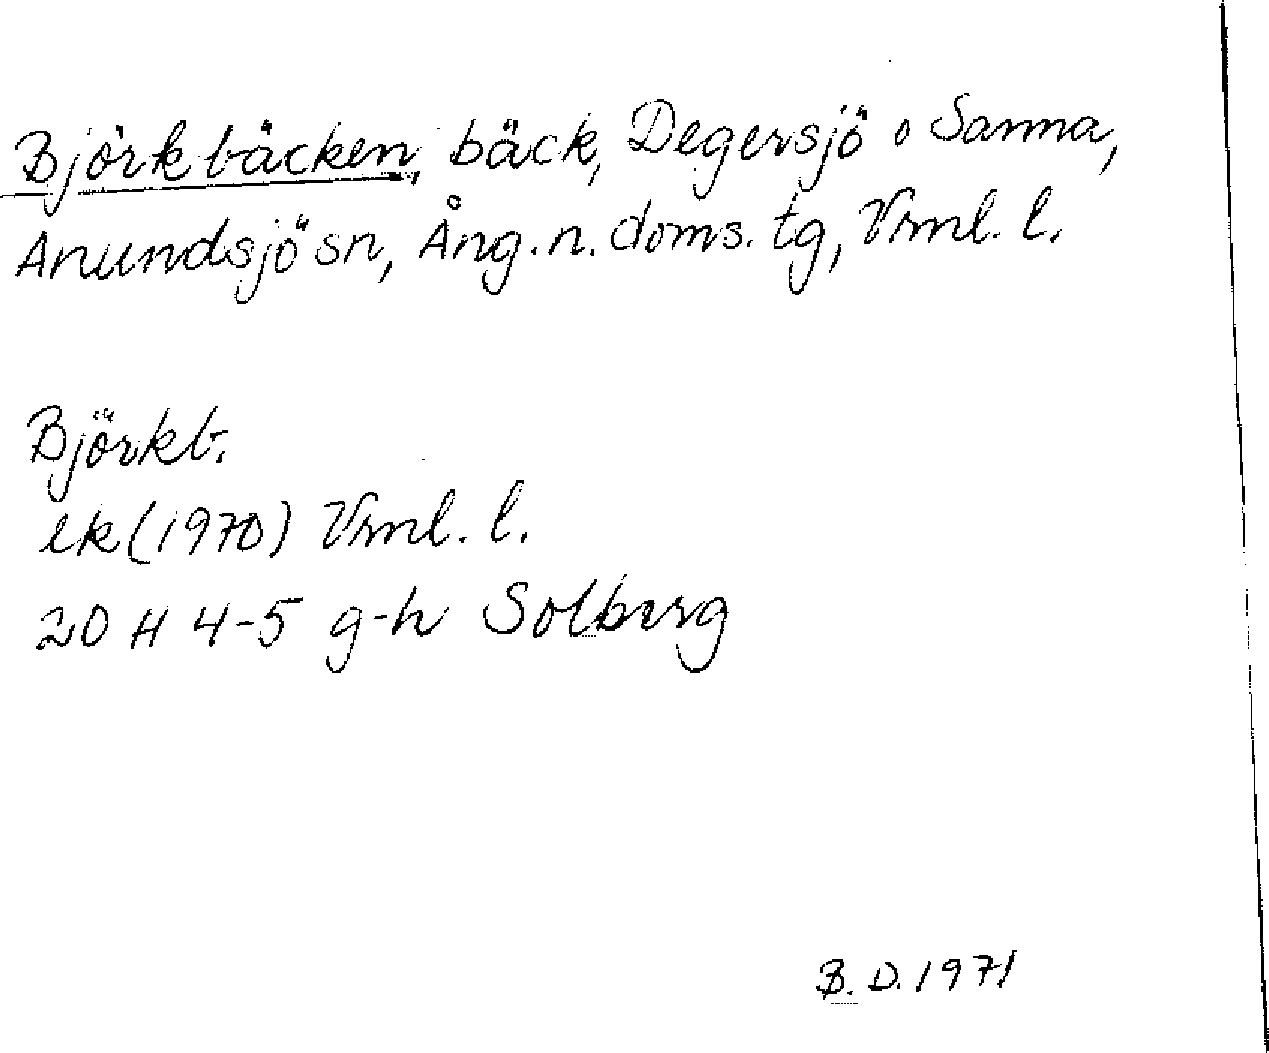 Björkbäcken, bäck, Degersjö o Sanna,
Anundsjö sn, Ång. n. doms. tg, Vrnl. l.
Björkb.
ek (1970) Vrnl. l.
20 H 4-5 g-h Solberg
B. D. 1971